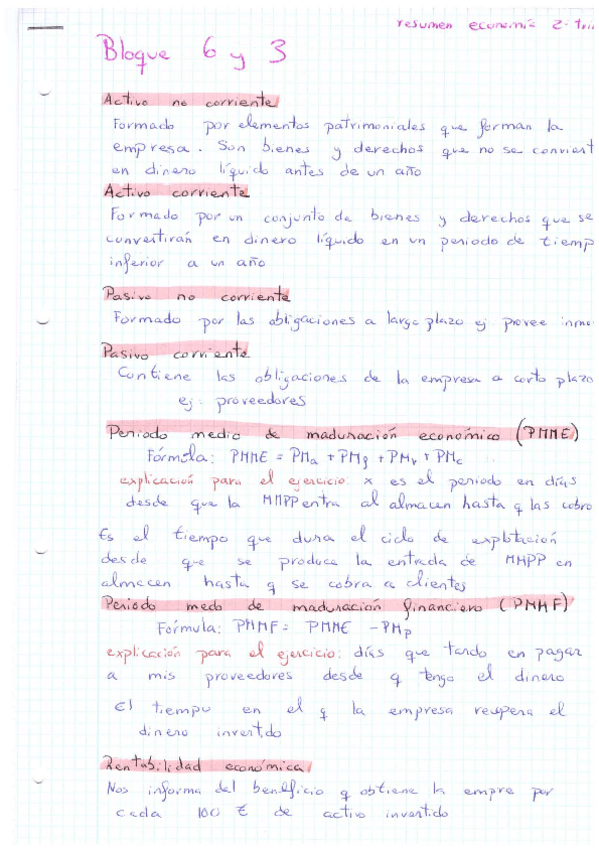 resumen economía 2º tri
Bloque 6 y 3
Activo no corriente
Formado por elementos patrimoniales que forman la
empresa. Son bienes y derechos que no se conviert
en dinero líquido antes de un año
Activo corriente
Formado por un conjunto de bienes y derechos que se
convertirán en dinero líquido en un periodo de tiemp
inferior a un año
Pasivo no corriente
Formado por las obligaciones a largo plazo ej. provee inmo
Pasivo corriente
Contiene las obligaciones de la empresa a corto plazo
ej: proveedores
Periodo medio de maduración económico (PMME)
Fórmula: PMME = PMa + PMf + PMv + PMc
explicación para el ejercicio: x es el periodo en días
desde que la MMPP entra al almacen hasta q las cobro
Es el tiempo que dura el ciclo de explotación
desde que se produce la entrada de MMPP en
almacen hasta q se cobra a clientes
Periodo medo de maduración financiero (PMMF)
Fórmula: PMMF = PMME - PMp
explicación para el ejercicio: días que tardo en pagar
a mis proveedores desde q tengo el dinero
El tiempo en el q la empresa recupera el
dinero invertido
Rentabilidad económica
Nos informa del beneficio q obtiene la empre por
cada 100 € de activo invertido